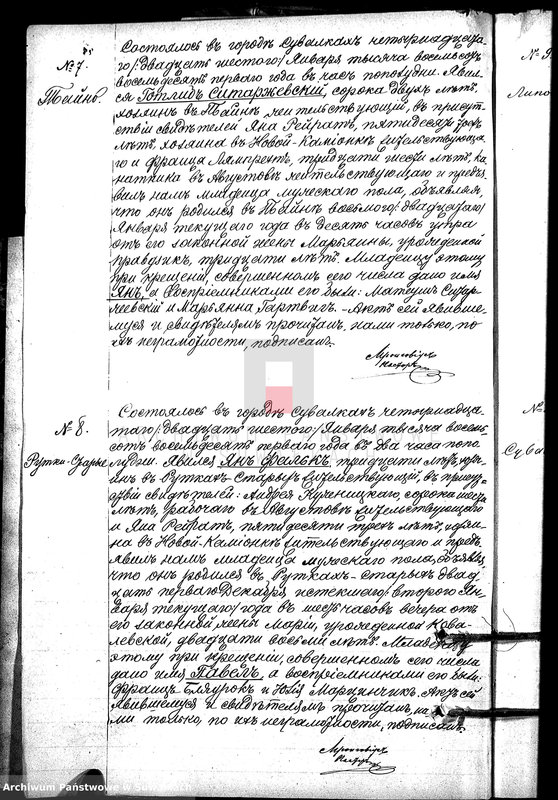 № 7.
Тайнъ.
Состоялось въ городѣ Сувалкахъ четырнадцата-
го /: двадцать шестого :/ Января тысяча восемьсотъ
восемьдесятъ перваго года въ часъ пополудни. Явил-
ся Готлибъ Ситаржевскій, сорока двухъ лѣтъ,
хозяинъ въ Тайнѣ жительствующій, въ присут-
ствіи свидѣтелей Яна Рейратъ, пятидесяти трехъ
лѣтъ, хозяина въ Новой-Каміонкѣ жительствующа-
го и Франца Лямпрехтъ, тридцати шести лѣтъ, ка-
натника въ Августовѣ жительствующаго и предъ-
явилъ намъ младенца мужескаго пола, объявляя,
что онъ родился въ Тайнѣ восьмого /: двадцатаго :/
Января текущаго года въ десять часовъ утра
отъ его законной жены Марьянны, урожденной
Правдзикъ, тридцати лѣтъ. Младенцу этому
при крещеніи, совершенномъ сего числа дано имя
Янъ, а воспріемниками его были: Матеушъ Ситар-
жевскій и Марьянна Гартвихъ. - Актъ сей явивше-
муся и свидѣтелямъ прочитанъ, нами только, по
ихъ неграмотности, подписанъ.
№ 8.
Рутки-Старые
Состоялось въ городѣ Сувалкахъ четырнадца-
таго /: двадцать шестого :/ Января тысяча восемь-
сотъ восемьдесятъ перваго года въ два часа попо-
лудни. Явился Янъ Фалькъ, тридцати лѣтъ, хозя-
инъ въ Руткахъ-Старыхъ жительствующій, въ присут-
ствіи свидѣтелей: Андрея Кучиницкаго, сорока шести
лѣтъ, рабочаго въ Августовѣ жительствующаго
и Яна Рейратъ, пятидесяти трехъ лѣтъ, хозяи-
на въ Новой-Каміонкѣ жительствующаго и предъ-
явилъ намъ младенца мужескаго пола, объявляя,
что онъ родился въ Руткахъ-Старыхъ двад-
цать перваго Декабря истекшаго /: второго Ян-
варя текущаго :/ года въ шесть часовъ вечера отъ
его законной жены Маріи, урожденной Кова-
левской, двадцати восьми лѣтъ. Младенцу
этому при крещеніи, совершенномъ сего числа
дано имя Павелъ, а воспріемниками его были:
Францъ и Юлія Марцинчикъ. Актъ сей
явившемуся и свидѣтелямъ прочитанъ, на-
ми только, по ихъ неграмотности, подписанъ.
№ 9.
Липо
№
Сува
Archiwum Państwowe w Suwałkach